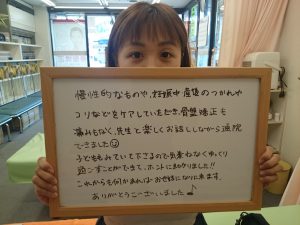 慢性的なものや、妊娠中産後のつかれや
コリなどをケアしていただき、骨盤矯正も
痛みもなく、先生と楽しくお話ししながら通院
できました
子どもをみていて下さるので気兼ねなくゆっくり
過ごすことができて、ホントに助かりました!!
これからも何かあれば、お世話になりに来ます。
ありがとうございました